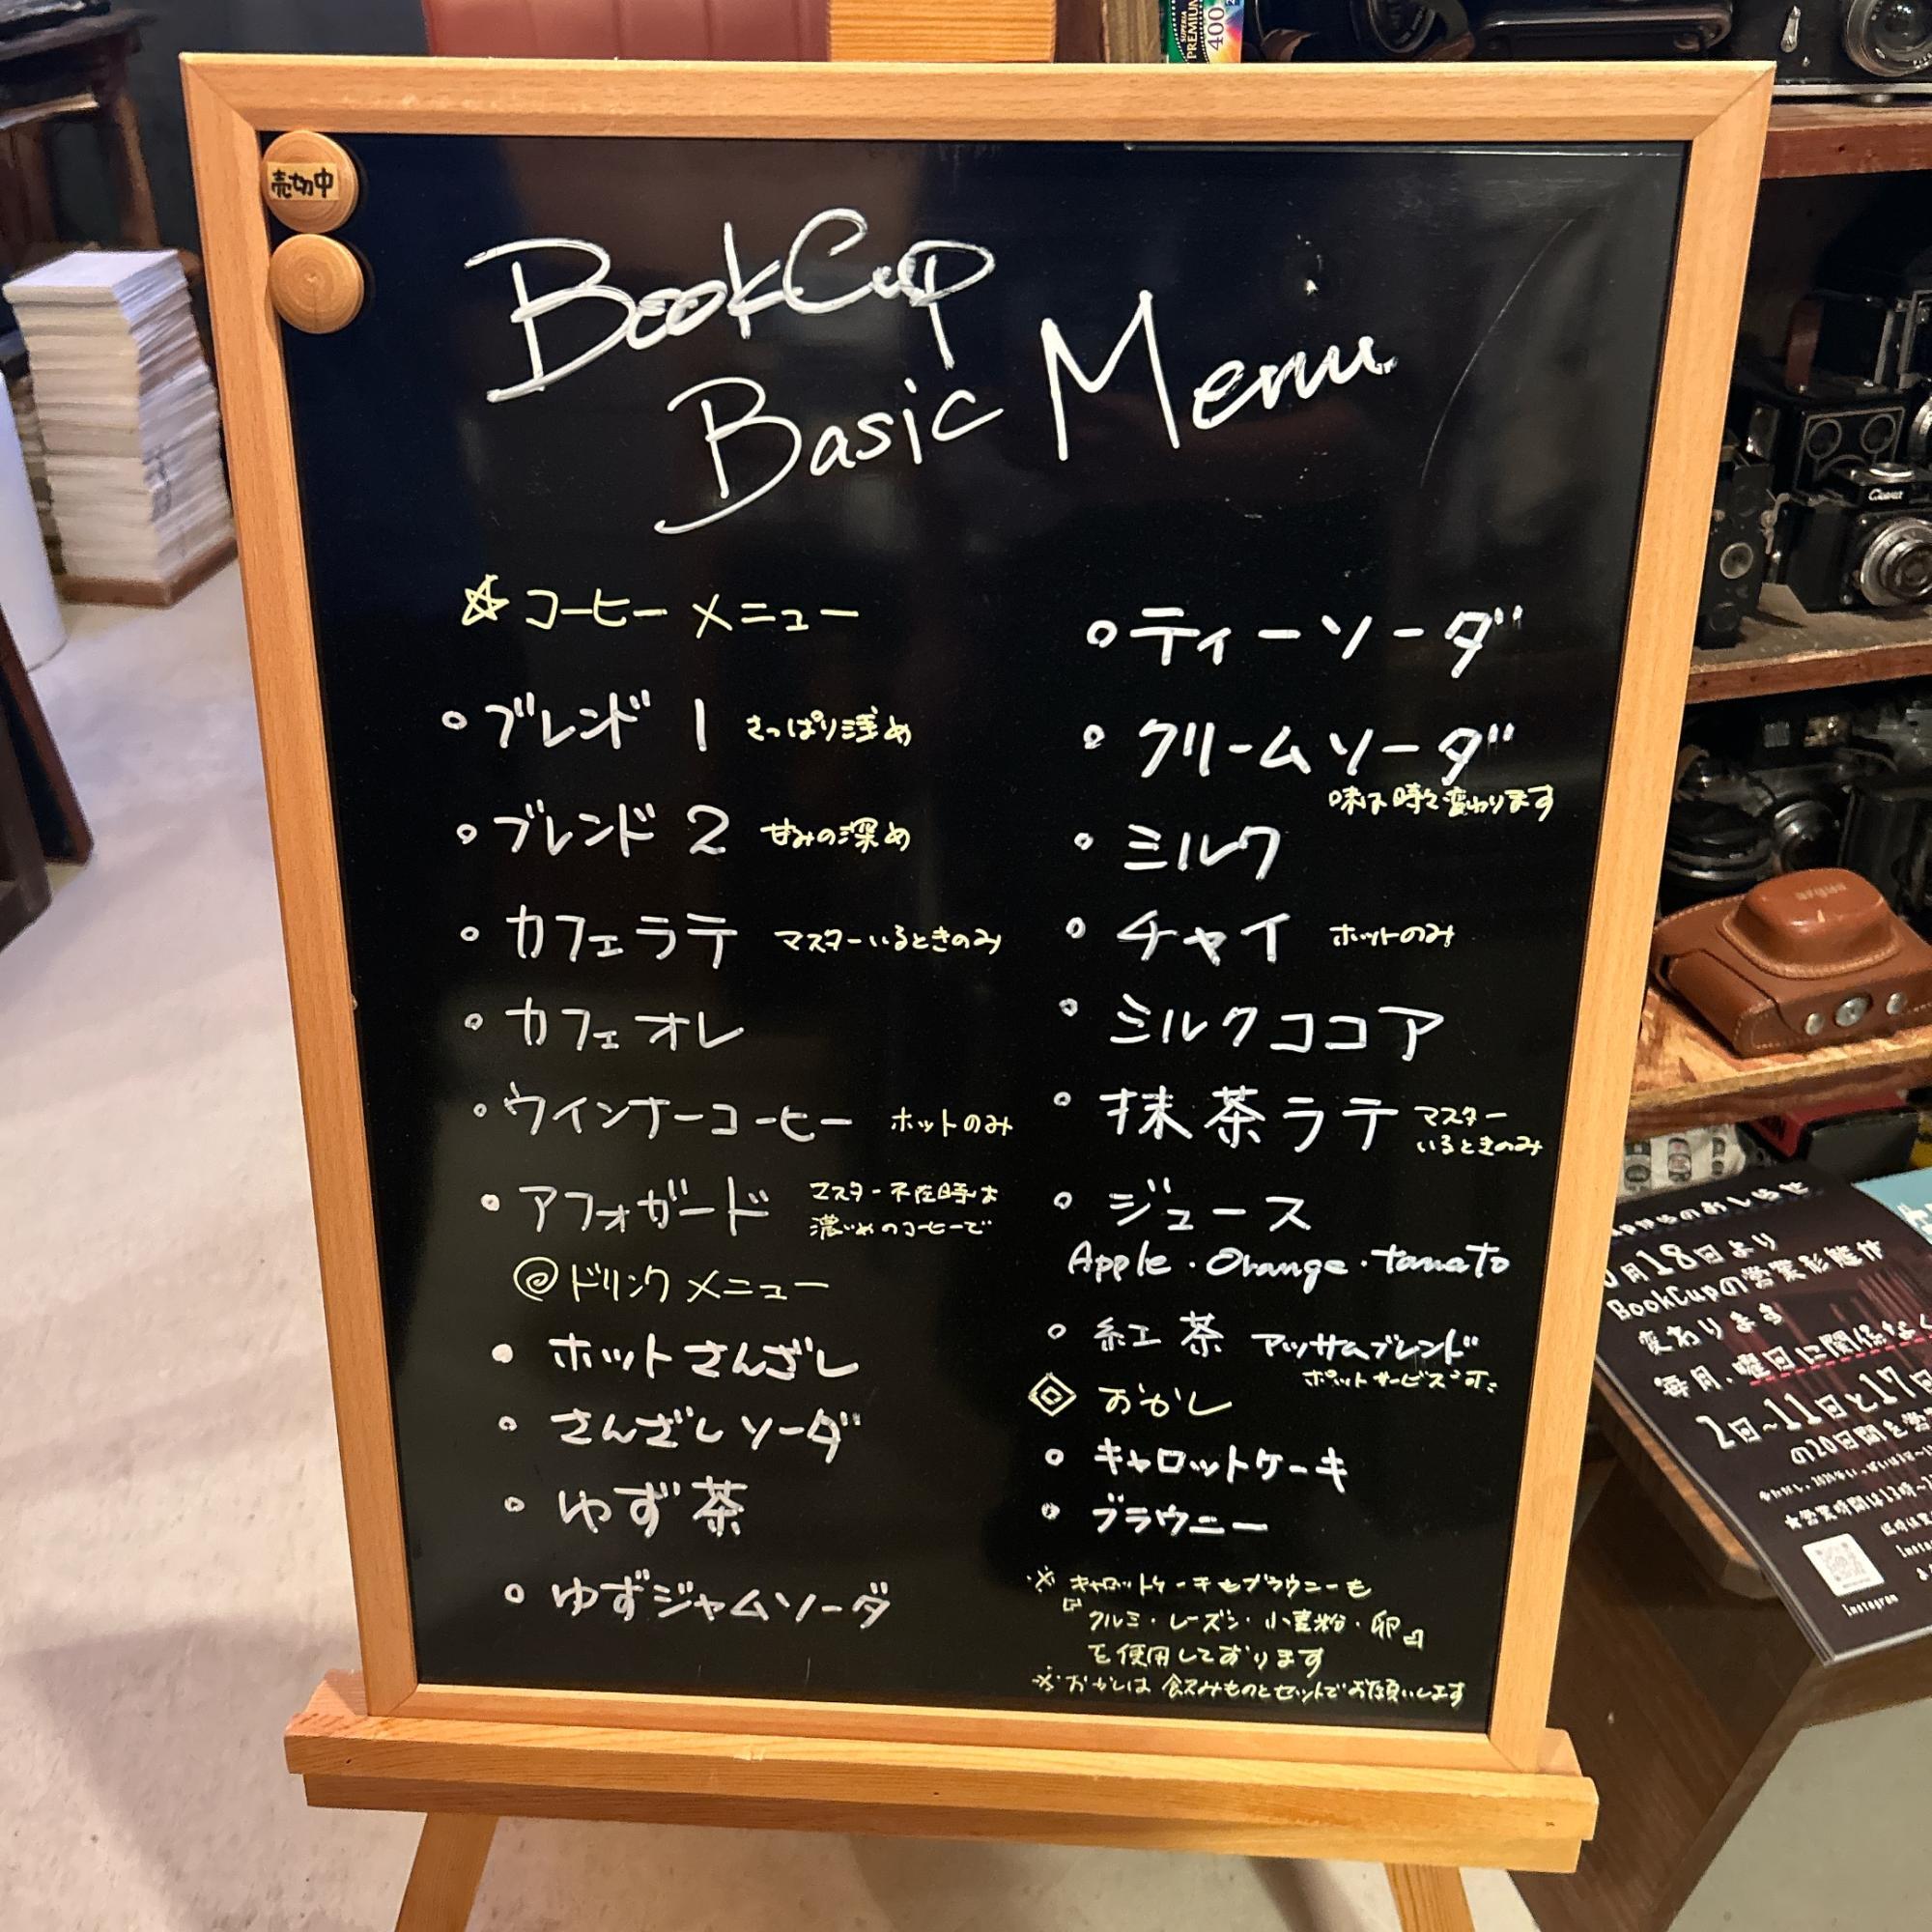 売切中
BookCup
Basic Menu
☆ コーヒーメニュー
○ ブレンド 1 さっぱり浅め
○ ブレンド 2 甘みの深め
○ カフェラテ マスターいるときのみ
○ カフェオレ
○ ウインナーコーヒー ホットのみ
○ アフォガード マスター不在時は
濃いめのコーヒーで
ドリンクメニュー
● ホットさんざし
○ さんざしソーダ
○ ゆず茶
○ ゆずジャムソーダ
○ ティーソーダ
○ クリームソーダ
味は時々変わります
○ ミルク
○ チャイ ホットのみ
○ ミルクココア
○ 抹茶ラテ マスター
いるときのみ
○ ジュース
Apple・Orange・tomato
○ 紅茶 アッサムブレンド
ポットサービス可
おかし
○ キャロットケーキ
○ ブラウニー
※ キャロットケーキもブラウニーも
『クルミ・レーズン・小麦粉・卵』
を使用しております
※ おかしは飲みものとセットでお願いします
PREMIUM
400
月18日より
BookCupの営業形態が
変わります
毎月、曜日に関係なく
2日~11日と17日
の20日間を営
Instagram